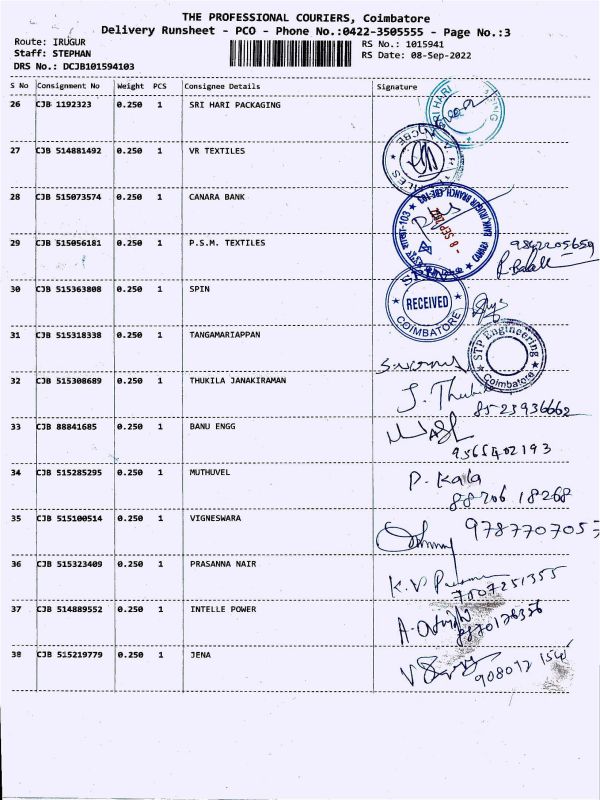 THE PROFESSIONAL COURIERS, Coimbatore
Delivery Runsheet - PCO - Phone No.:0422-3505555 - Page No.:3
Route: IRUGUR
Staff: STEPHAN
DRS No.: DCJB101594103
RS No.: 1015941
RS Date: 08-Sep-2022
S No Consignment No Weight PCS Consignee Details Signature
26 CJB 1192323 0.250 1 SRI HARI PACKAGING
SRI HARI
27 CJB 514881492 0.250 1 VR TEXTILES
28 CJB 515073574 0.250 1 CANARA BANK
8 SEP 2022
29 CJB 515056181 0.250 1 P.S.M. TEXTILES
9842205659
30 CJB 515363808 0.250 1 SPIN
RECEIVED
COIMBATORE
31 CJB 515318338 0.250 1 TANGAMARIAPPAN
STP Engineering
Coimbatore
32 CJB 515308689 0.250 1 THUKILA JANAKIRAMAN
8523936662
33 CJB 88841685 0.250 1 BANU ENGG
9565402193
34 CJB 515285295 0.250 1 MUTHUVEL
P. Kala
88706 18268
35 CJB 515100514 0.250 1 VIGNESWARA
9787707057
36 CJB 515323409 0.250 1 PRASANNA NAIR
7007251355
37 CJB 514889552 0.250 1 INTELLE POWER
38 CJB 515219779 0.250 1 JENA